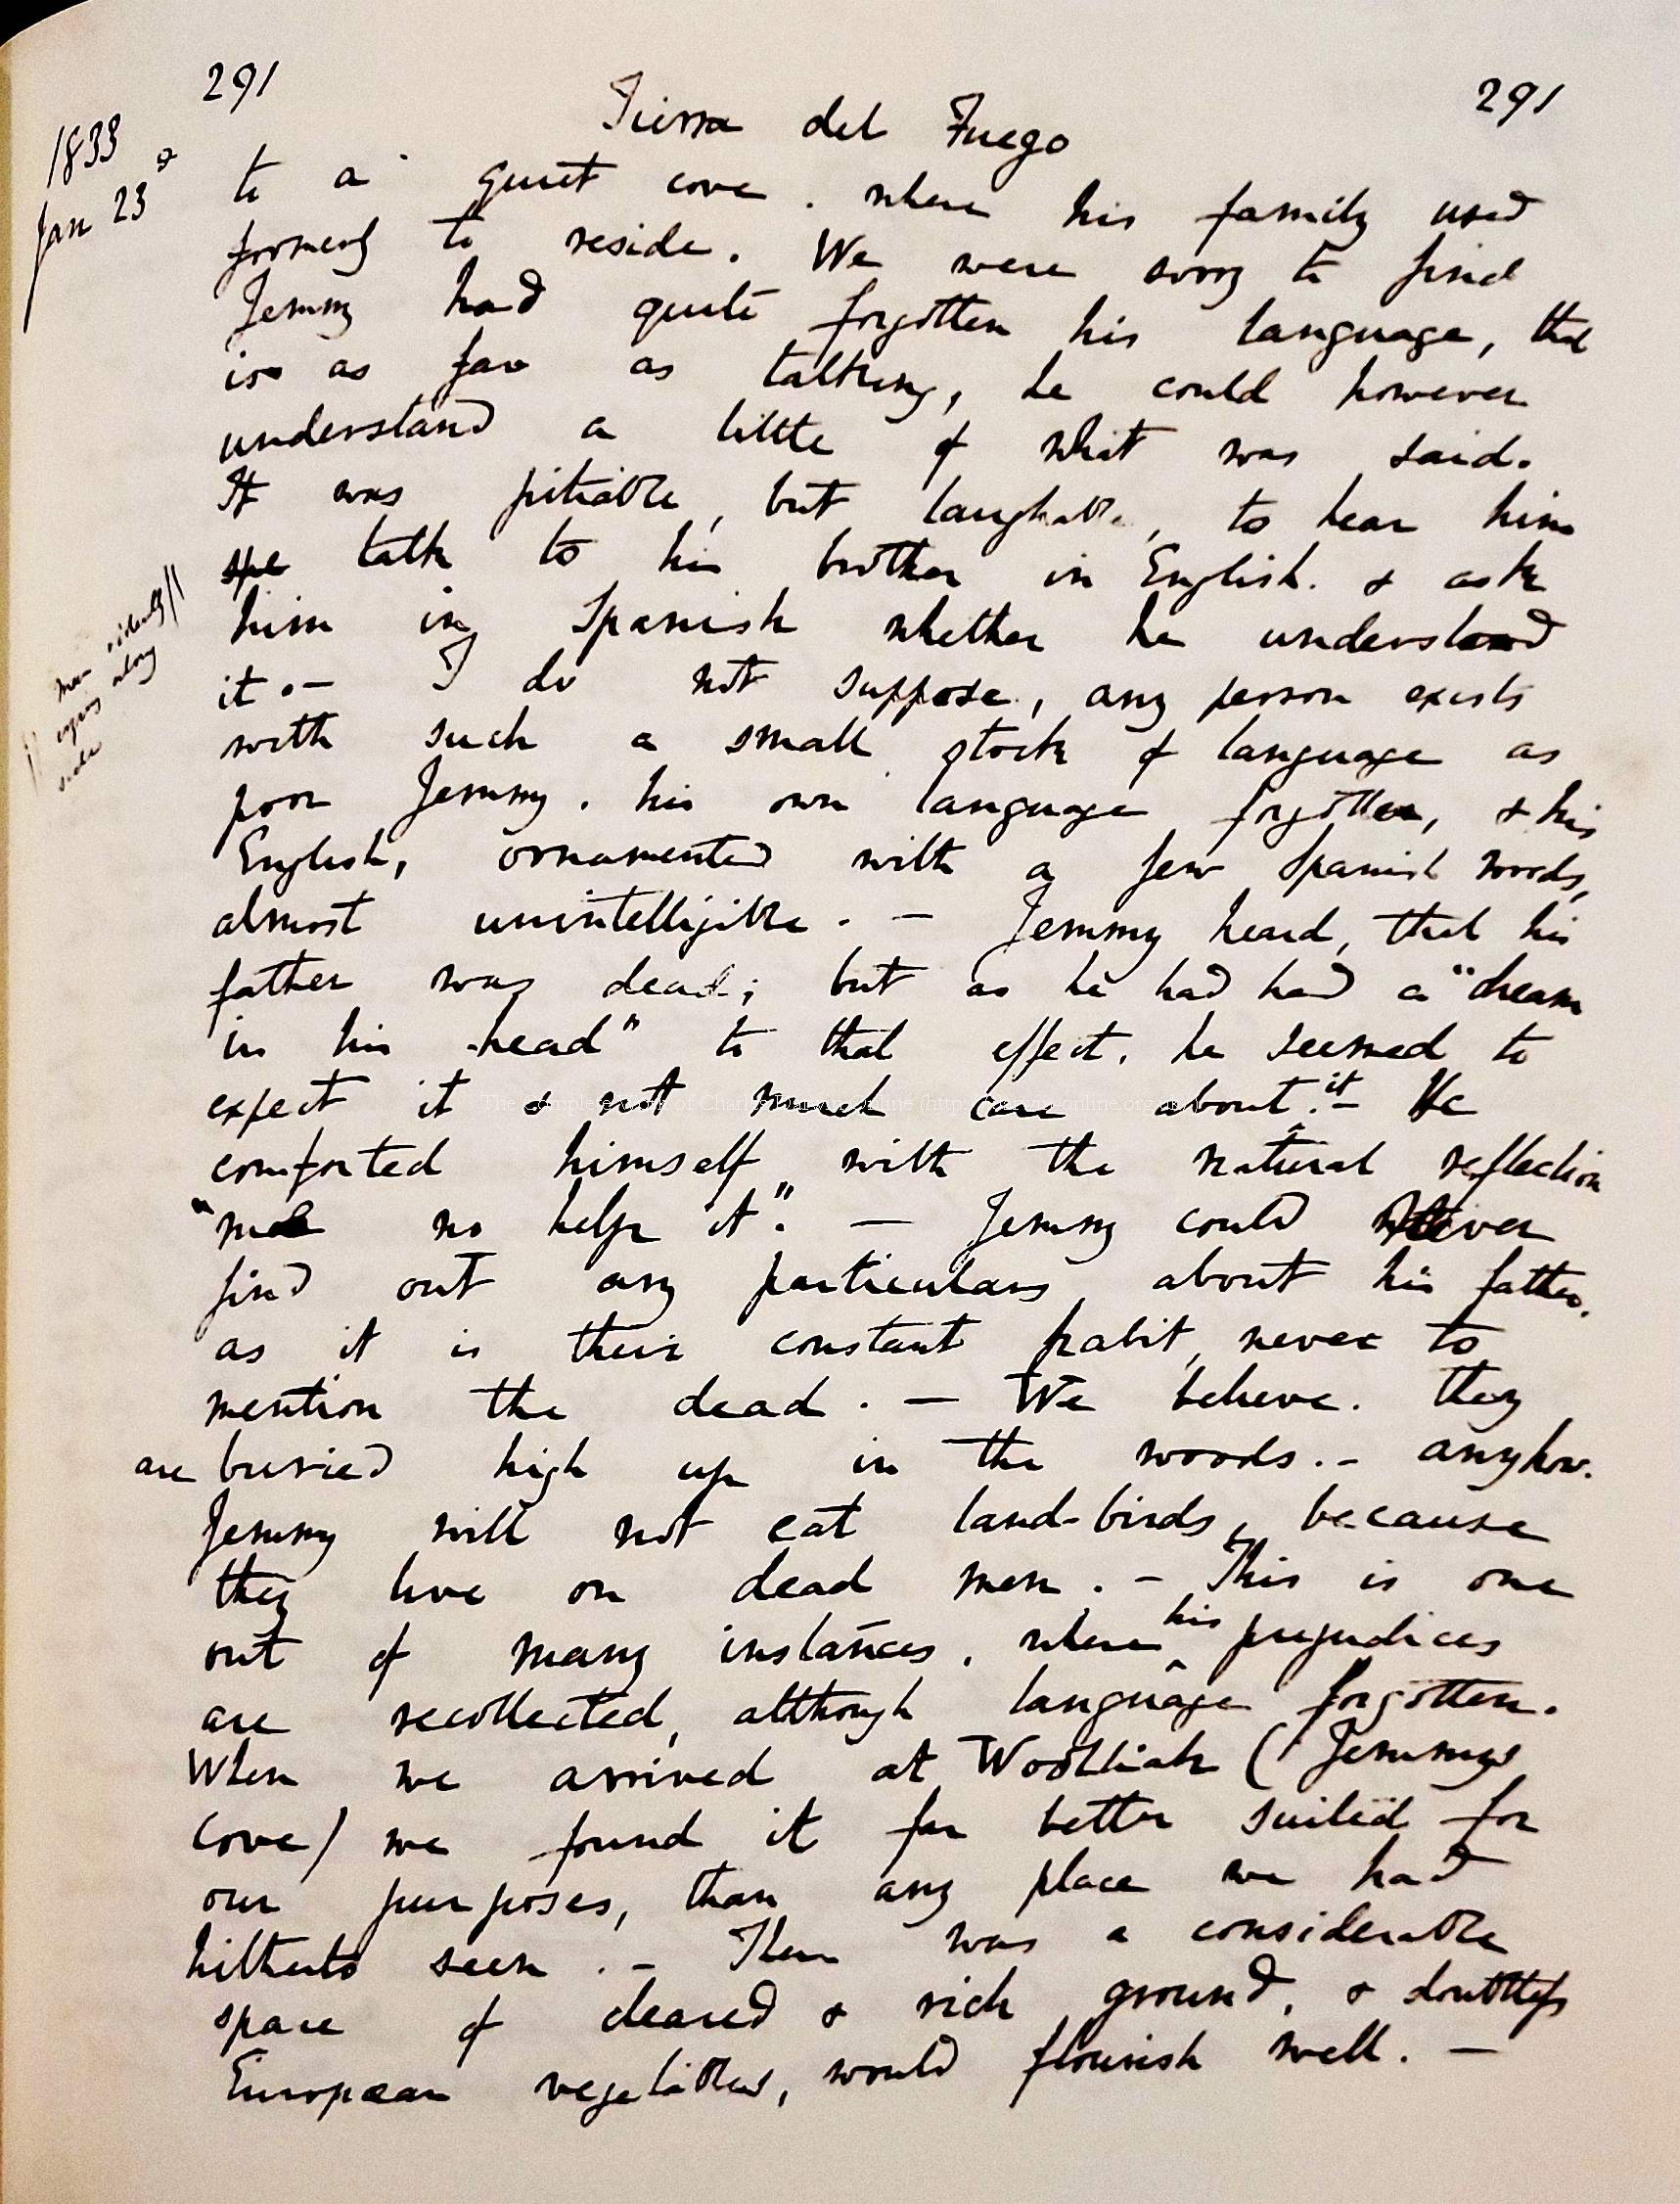 291 Tierra del Fuego 291
1833
Jan 23d
to a quiet cove. where his family used
formerly to reside. We were sorry to find
Jemmy had quite forgotten his language, that
is as far as talking, he could however
understand a little of what was said.
It was pitiable, but laughable, to hear him
spe talk to his brother in English. & ask
him in Spanish whether he understood
it.— I do not suppose, any person exists
with such a small stock of language as
poor Jemmy. his own language forgotten, & his
English, ornamented with a few Spanish words,
almost unintelligible. — Jemmy heard, that his
father was dead; but as he had had a "dream
in his head" to that effect. he seemed to
expect it & not much care about it.— He
comforted himself with the natural reflection
"me no help it". — Jemmy could never
find out any particulars about his father.
as it is their constant habit, never to
mention the dead. — We believe. they
are buried high up in the woods.— anyhow.
Jemmy will not eat land-birds, because
they live on dead men. — This is one
out of many instances, where his prejudices
are recollected, although language forgotten.
When we arrived at Woolliah (Jemmys
Cove) we found it far better suited for
our purposes, than any place we had
hitherto seen. — There was a considerable
space of cleared & rich ground, & doubtless
European vegetables, would flourish well. —
along